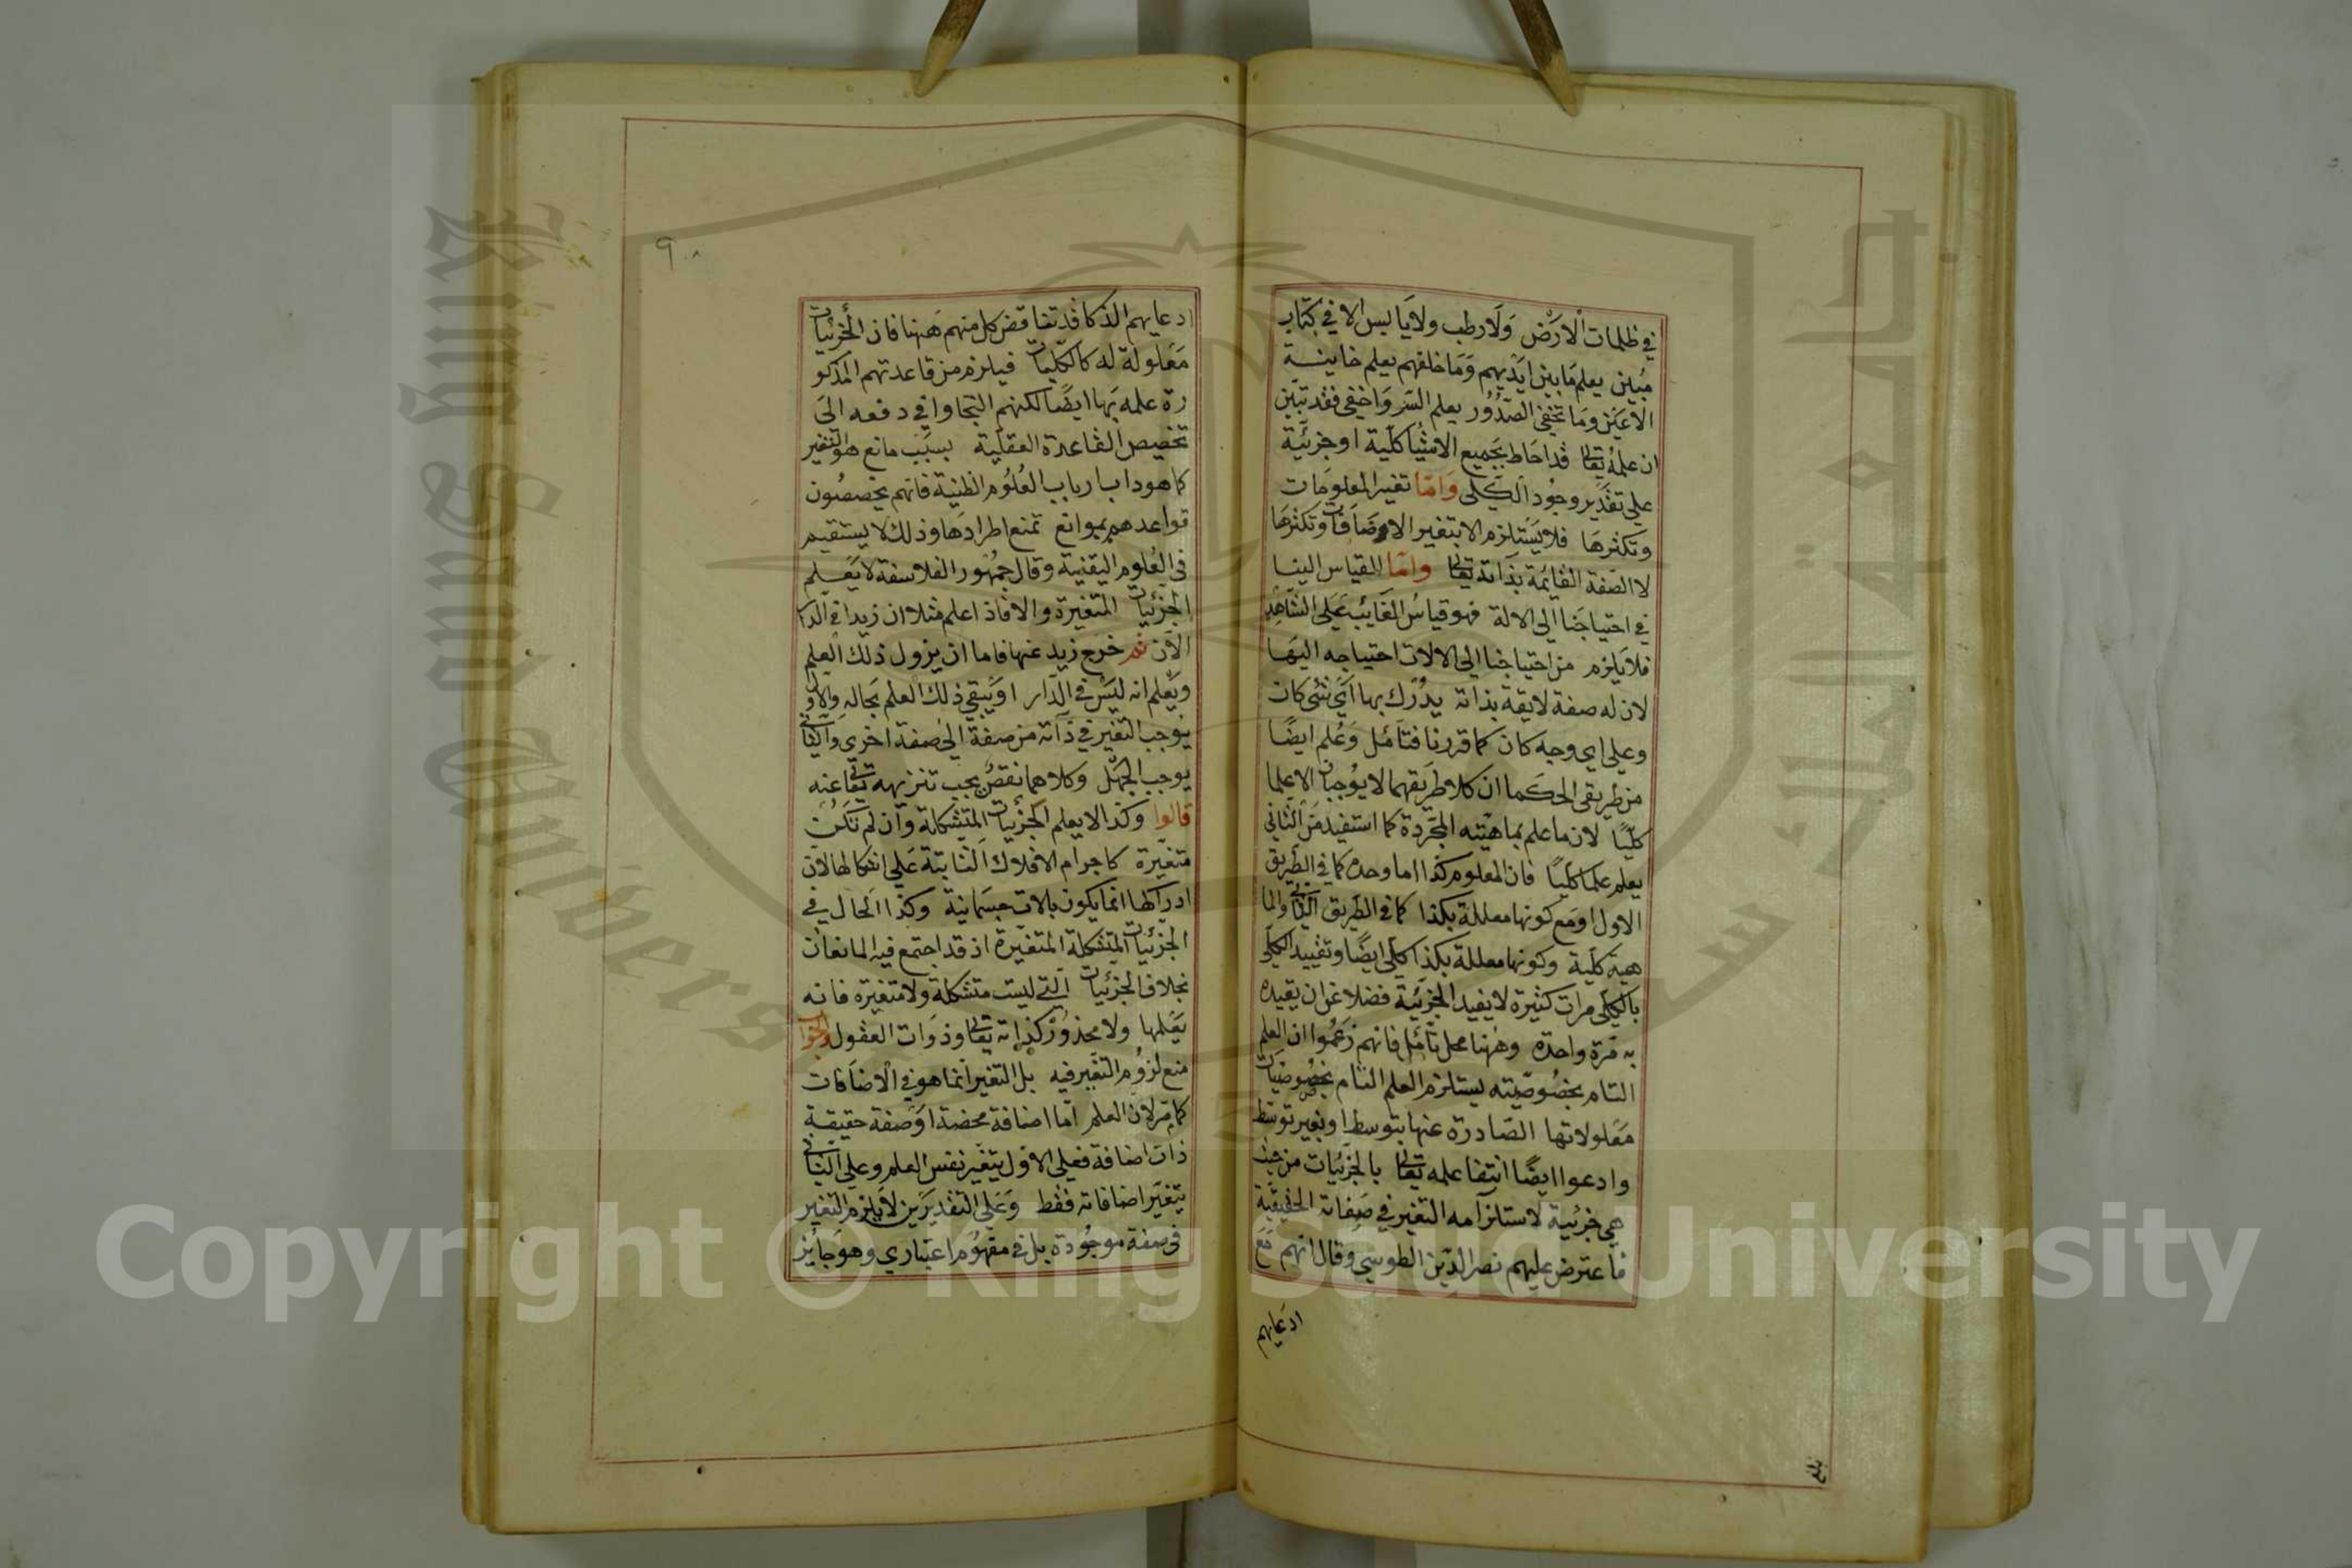 في ظلمات الارض ولا رطب ولا يابس الا في كتاب
مبين يعلم ما بين ايديهم وما خلفهم يعلم خاينة
الاعين وما تخفي الصدور يعلم السر واخفى فقد تبين
ان علمه تعالى قد احاط بجميع الاشيا كلية او جزئية
على تقدير وجود الكلي واما تغير المعلومات
وتكثرها فلا يستلزم الا بتغير الاضافات وتكثرها
لا الصفة القائمة بذاته تعالى واما القياس الينا
في احتياجنا الى الالة فهو قياس الغائب على الشاهد
فلا يلزم من احتياجنا الى الالات احتياجه اليها
لان له صفة لايقة بذاته يدرك بها اي شئ كان
وعلى اي وجه كان كما قررنا فتامل وعلم ايضا
من طريقي الحكما ان كلا طريقهما لا يوجبان الا علما
كليا لان ما علم بماهيته المجردة كما استفيد من الثاني
يعلم علما كليا فان المعلوم كذا اما وحده كما في الطريق
الاول او مع كونها معللة بكذا كما في الطريق الثاني والما
هية كلية وكونها معللة بكذا كلي ايضا وتقييد الكلي
بالكلي مرات كثيرة لا يفيد الجزئية فضلا عن ان يقيده
به مرة واحدة وههنا محل تامل فانهم زعموا ان العلم
التام بخصوصيته يستلزم العلم التام بخصوصيات
معلولاتها الصادرة عنها بتوسط او بغير توسط
وادعوا ايضا انتفا علمه تعالى بالجزئيات من حيث
هي جزئية لاستلزامه التغير في صفاته الحقيقية
فاعترض عليهم نصر الدين الطوسي وقال انهم مع
ادعايهم
بلغ
٩٠
ادعايهم الذكا قد تناقض كل منهم ههنا فان الجزئيات
معلولة له كالكليات فيلزم من قاعدتهم المذكو
رة علمه بها ايضا لكنهم التجاوا في دفعه الى
تخصيص القاعدة العقلية بسبب مانع هو التغير
كما هو داب ارباب العلوم الظنية فانهم يخصصون
قواعدهم بموانع تمنع اطرادها وذلك لا يستقيم
في العلوم اليقنية وقال جمهور الفلاسفة لا يعلم
الجزئيات المتغيرة والا فاذا علم مثلا ان زيدا في الدا
الان ثم خرج زيد عنها فاما ان يزول ذلك العلم
ويعلم انه ليس في الدار او يبقي ذلك العلم بحاله والاول
يوجب التغير في ذاته من صفة الى صفة اخري والثاني
يوجب الجهل وكلاهما نقص يجب تنزيهه تعالى عنه
قالوا وكذا لا يعلم الجزئيات المتشكلة وان لم تكن
متغيرة كاجرام الافلاك الثابتة على اشكالها لان
ادراكها انما يكون بالات جسمانية وكذا الحال في
الجزئيات المتشكلة المتغيرة اذ قد اجتمع فيه المانعان
بخلاف الجزئيات التي ليست متشكلة ولا متغيرة فانه
يعلمها ولا محذور كذاته تعالى وذوات العقول والجواب
منع لزوم التغير فيه بل التغير انما هو في الاضافات
كما مر لان العلم اما اضافة محضة او صفة حقيقية
ذات اضافة فعلى الاول يتغير نفس العلم وعلى الثاني
يتغير اضافاته فقط وعلى التقديرين لا يلزم التغير
في صفة موجودة بل في مفهوم اعتباري وهو جايز
King Saud University
جامعة الملك سعود
Copyright © King Saud University